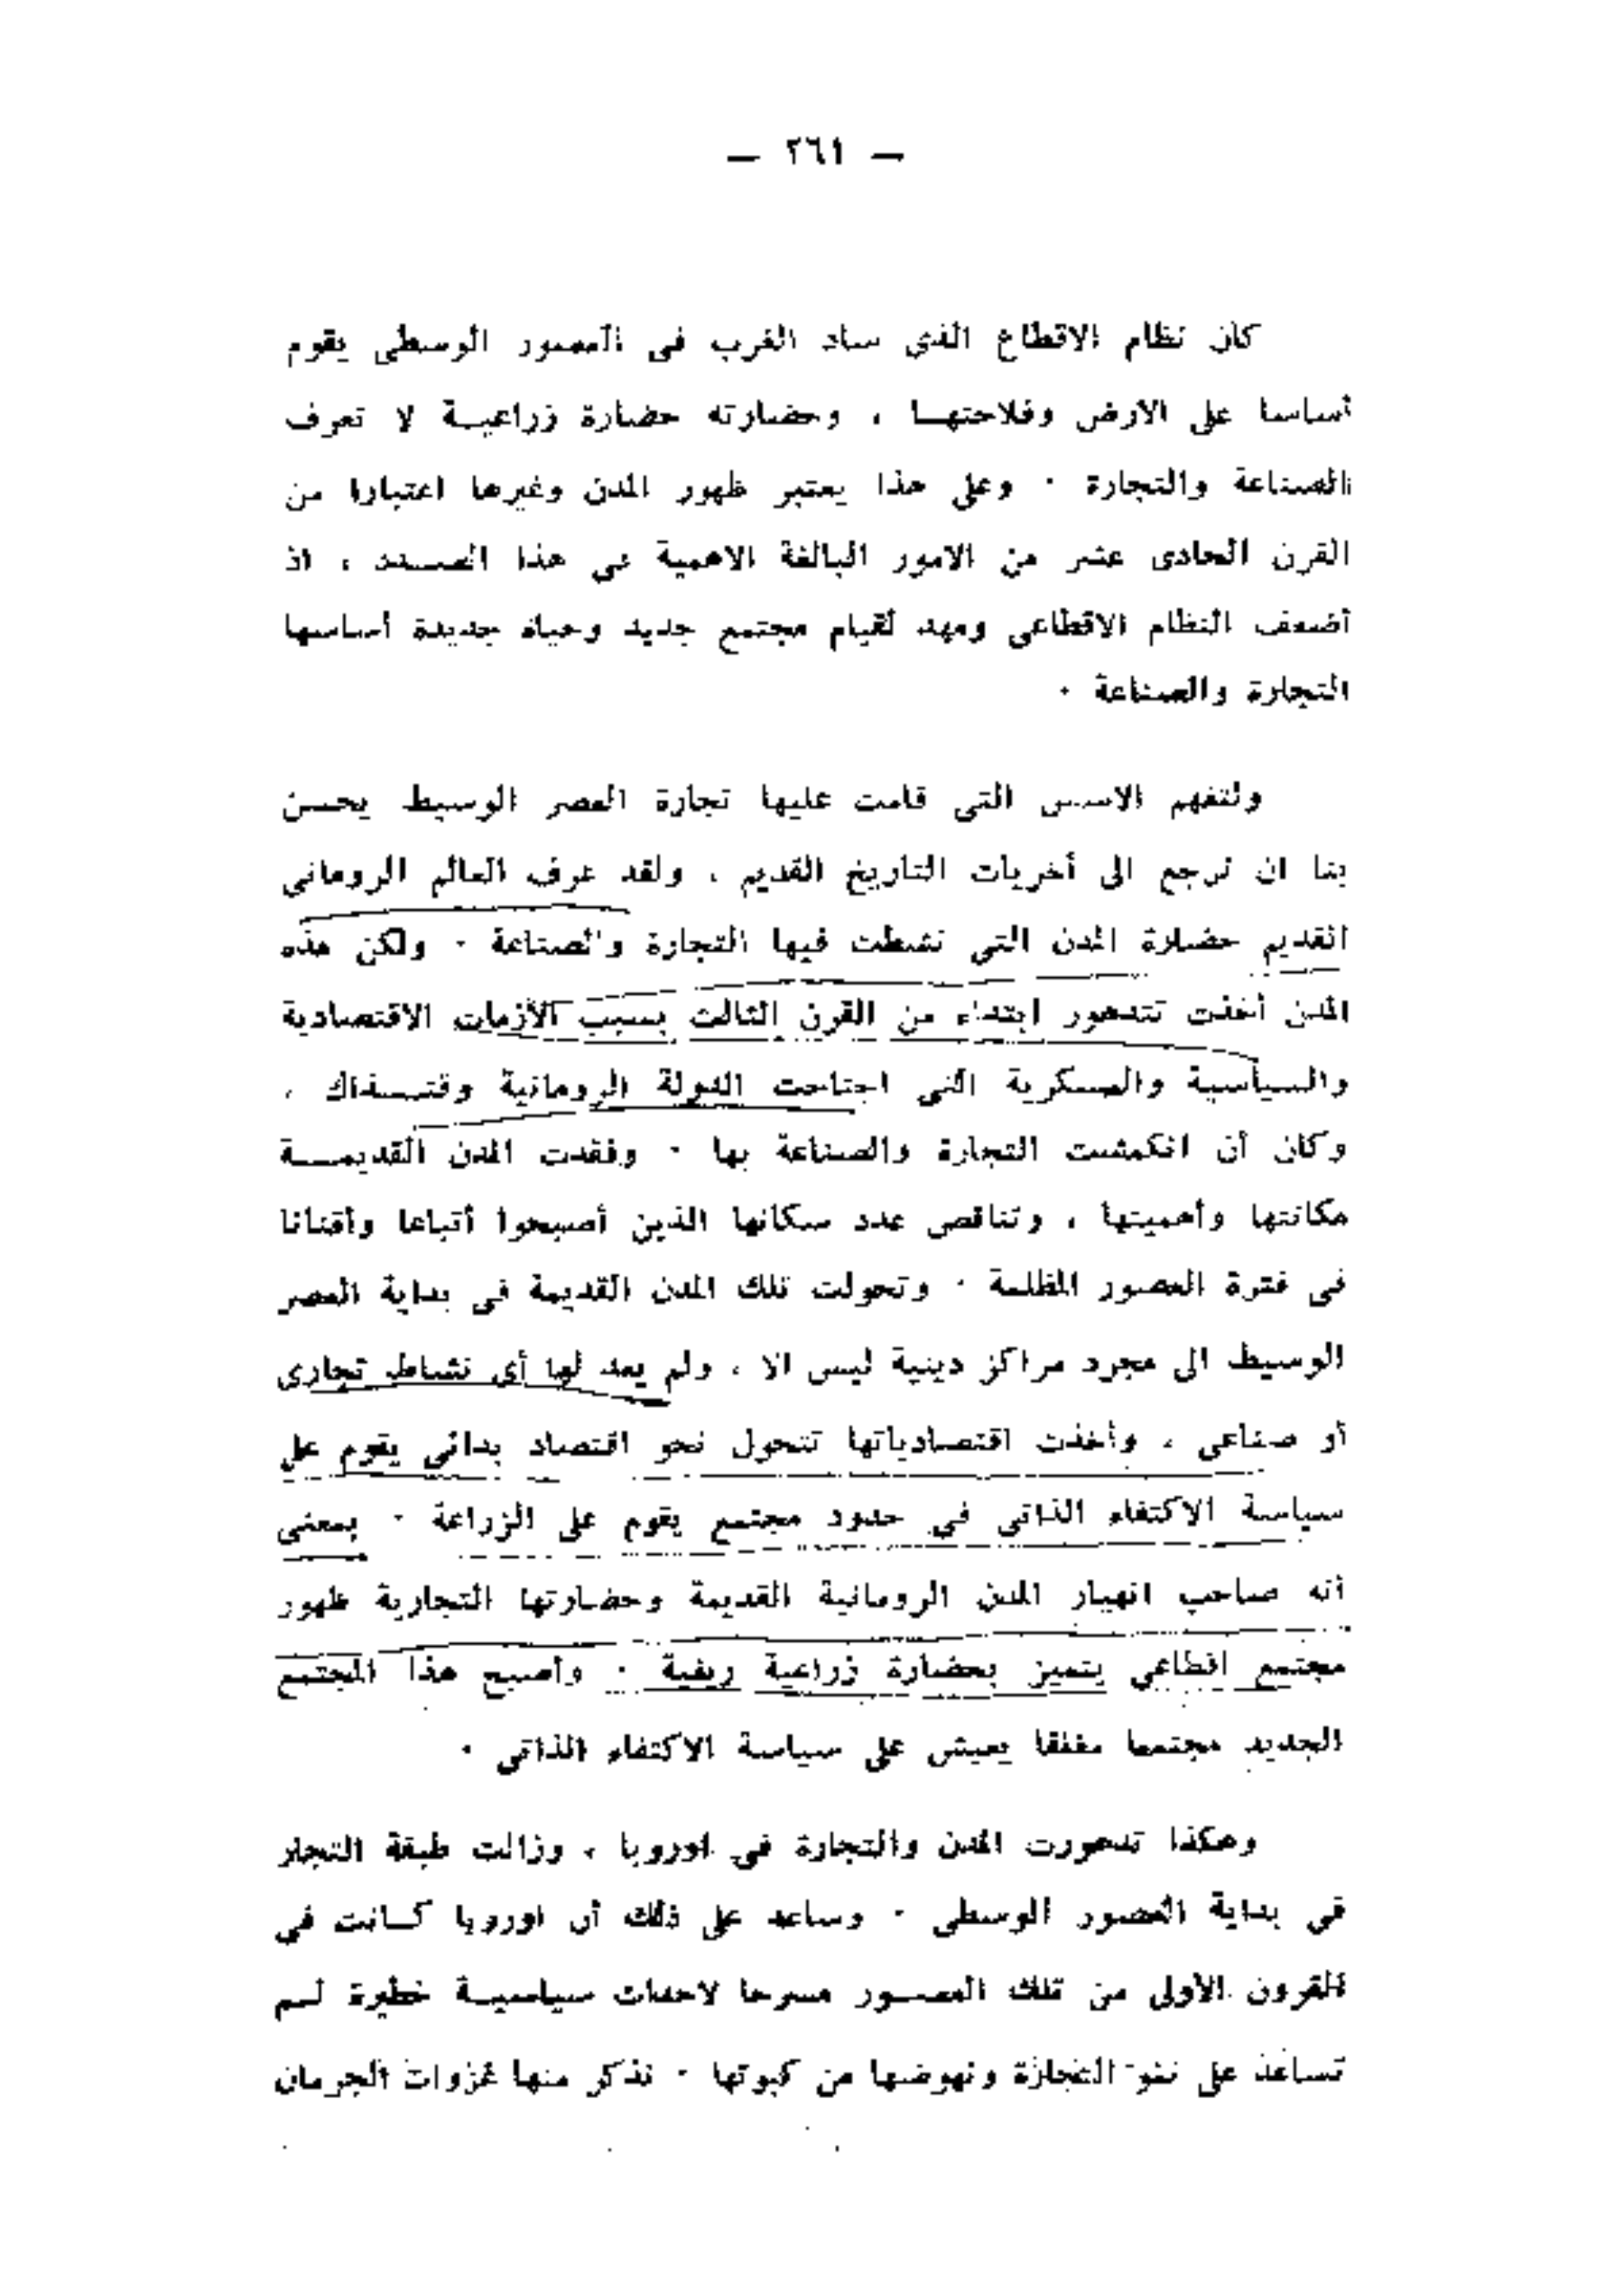 — ٢٦١ —
كان نظام الاقطاع الذى ساد الغرب فى العصور الوسطى يقوم
أساسا على الارض وفلاحتهـا ، وحضارته حضارة زراعيـة لا تعرف
الصناعة والتجارة ٠ وعلى هذا يعتبر ظهور المدن وغيرها اعتبارا من
القرن الحادى عشر من الامور البالغة الاهمية فى هذا الصـدد ، اذ
أضعف النظام الاقطاعى ومهد لقيام مجتمع جديد وحياة جديدة أساسها
التجارة والصناعة ٠
ولتفهم الاسس التى قامت عليها تجارة العصر الوسيط يحسن
بنا ان نرجع الى أخريات التاريخ القديم ، ولقد عرف العالم الرومانى
القديم حضارة المدن التى نشطت فيها التجارة والصناعة ٠ ولكن هذه
المدن أخذت تتدهور ابتداء من القرن الثالث بسبب الأزمات الاقتصادية
والسياسية والعسكرية التى اجتاحت الدولة الرومانية وقتـذاك ،
وكان أن انكمشت التجارة والصناعة بها ٠ وفقدت المدن القديمـة
مكانتها وأهميتها ، وتناقص عدد سكانها الذين أصبحوا أتباعا وأقنانا
فى فترة العصور المظلمة ٠ وتحولت تلك المدن القديمة فى بداية العصر
الوسيط الى مجرد مراكز دينية ليس الا ، ولم يعد لها أى نشاط تجارى
أو صناعى ، وأخذت اقتصادياتها تتحول نحو اقتصاد بدائى يقوم على
سياسة الاكتفاء الذاتى فى حدود مجتمع يقوم على الزراعة ٠ بمعنى
أنه صاحب انهيار المدن الرومانية القديمة وحضارتها التجارية ظهور
مجتمع اقطاعى يتميز بحضارة زراعية ريفية ٠ وأصبح هذا المجتمع
الجديد مجتمعا مغلقا يعيش على سياسة الاكتفاء الذاتى ٠
وهكذا تدهورت المدن والتجارة فى اوروبا ، وزالت طبقة التجار
فى بداية العصور الوسطى ٠ وساعد على ذلك أن اوروبا كـانت فى
القرون الاولى من تلك العصـور مسرحا لاحداث سياسيـة خطيرة لـم
تساعد على نمو التجارة ونهوضها من كبوتها ٠ نذكر منها غزوات الجرمان